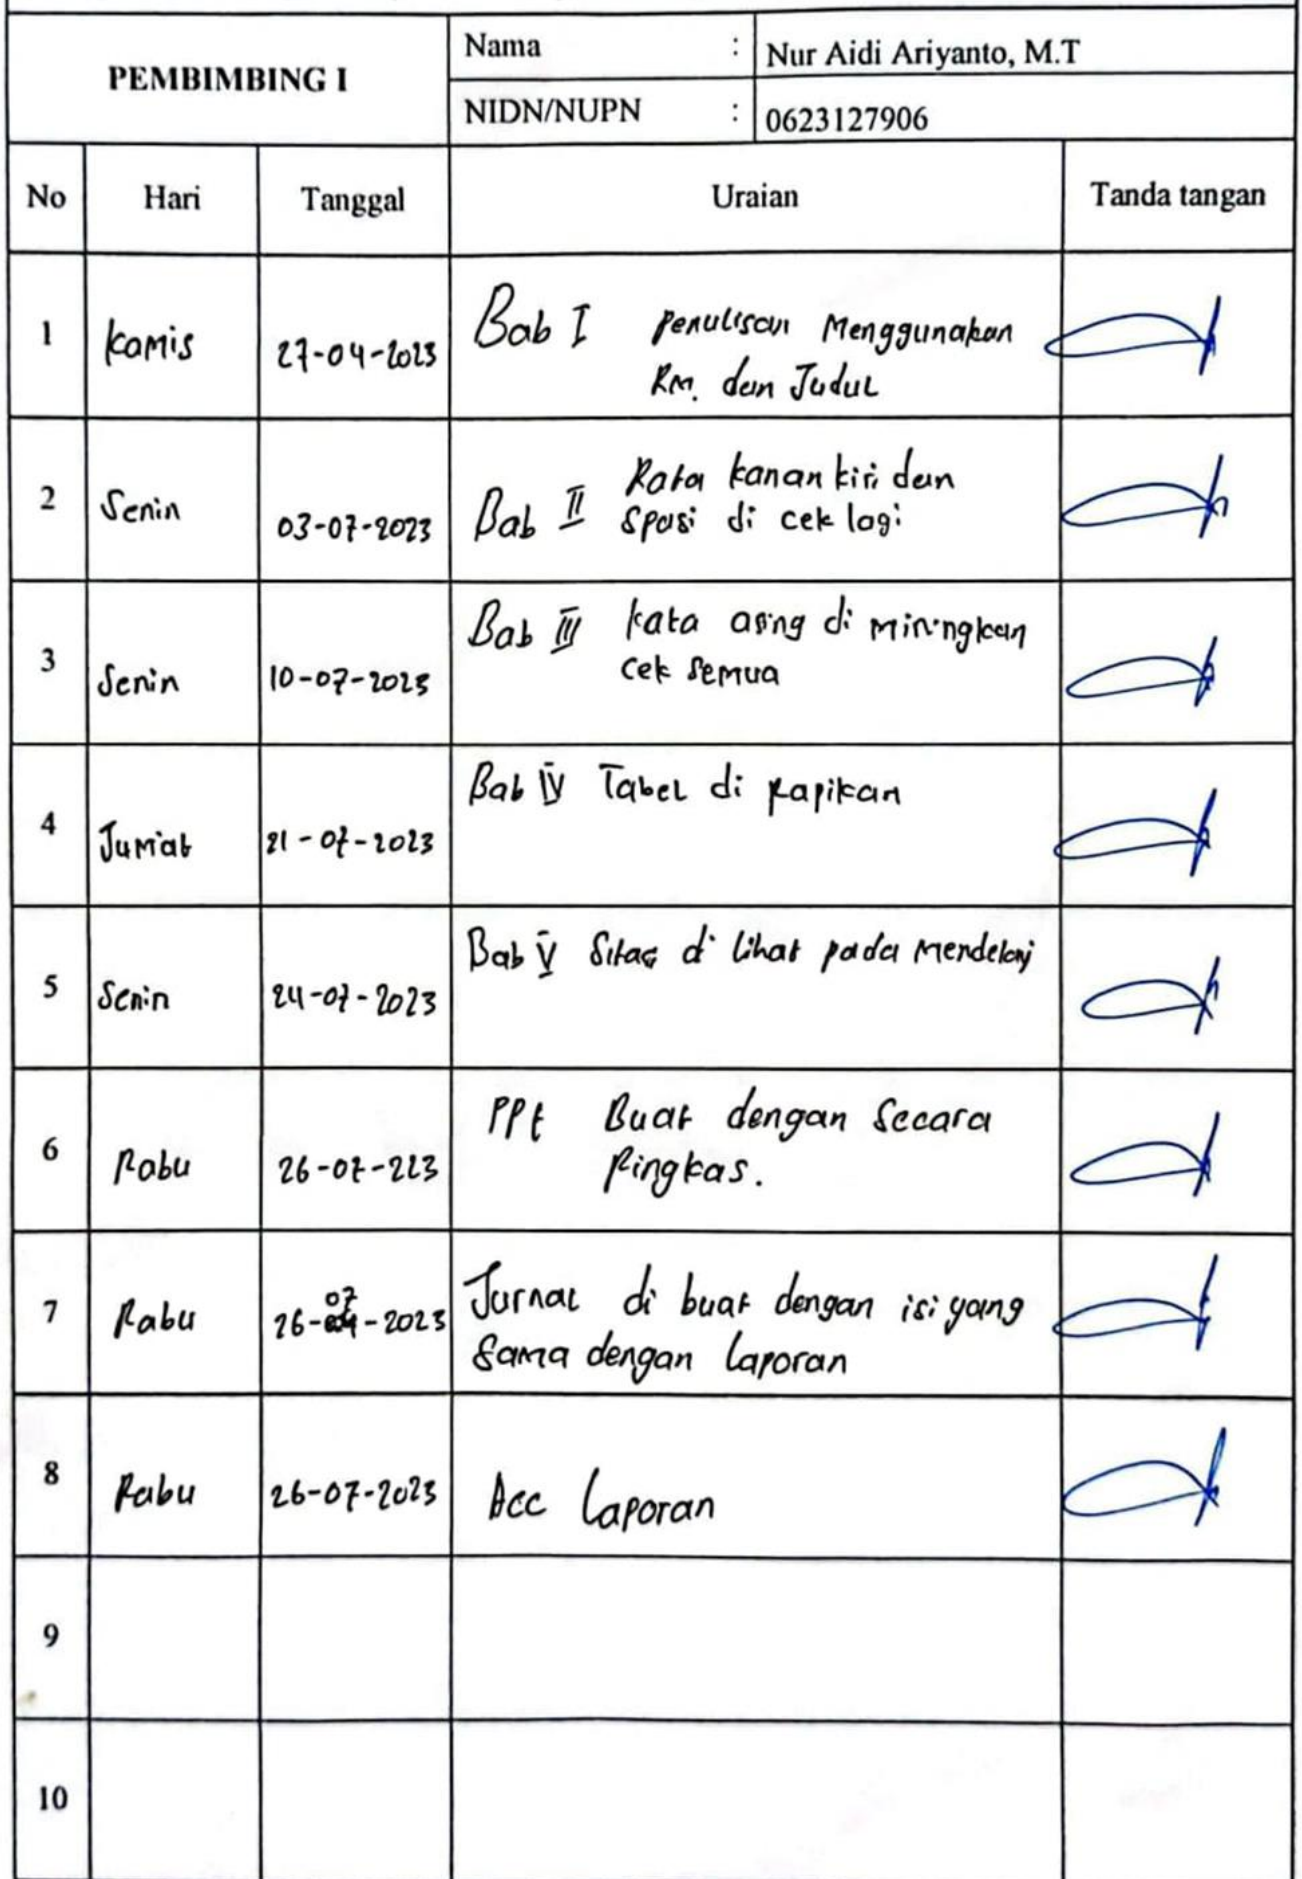 PEMBIMBING I
Nama : Nur Aidi Ariyanto, M.T
NIDN/NUPN : 0623127906
No Hari Tanggal Uraian Tanda tangan
1 Kamis 27-04-2023 Bab I Penulisan Menggunakan
RM. dan Judul
2 Senin 03-07-2023 Bab II Rata kanan kiri dan
Spasi di cek lagi
3 Senin 10-07-2023 Bab III kata asing di miringkan
cek semua
4 Jum'at 21-07-2023 Bab IV Tabel di rapikan
5 Senin 24-07-2023 Bab V di lihat pada Mendeley
6 Rabu 26-07-223 PPt Buat dengan Secara
Ringkas.
7 Rabu 26-07-2023 Jurnal di buat dengan isi yang
Sama dengan laporan
8 Rabu 26-07-2023 Acc Laporan
9
10